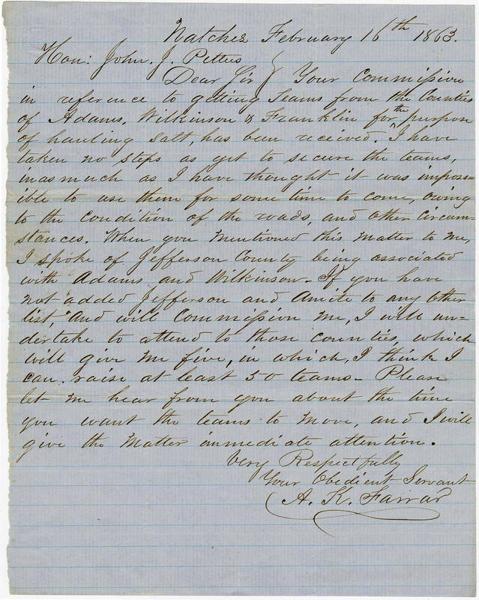 Natchez February 16th 1863.
Hon: John. J. Pettus
Dear Sir } Your Commission
in reference to getting teams from the Counties
of Adams, Wilkinson & Franklin for the purpose
of hauling salt, has been received. I have
taken no steps as yet to secure the teams,
inasmuch as I have thought it was imposs-
ible to use them for some time to come, owing
to the condition of the roads, and other circum-
stances. When you mentioned this matter to me,
I spoke of Jefferson County being associated
with Adams and Wilkinson. If you have
not added Jefferson and Amite to any other
list, and will Commission me, I will un-
dertake to attend to those counties, which
will give me five, in which, I think I
can raise at least 50 teams— Please
let me hear from you about the time
you want the teams to move, and I will
give the matter immediate attention.
Very Respectfully
Your Obedient Servant
A. K. Farrar